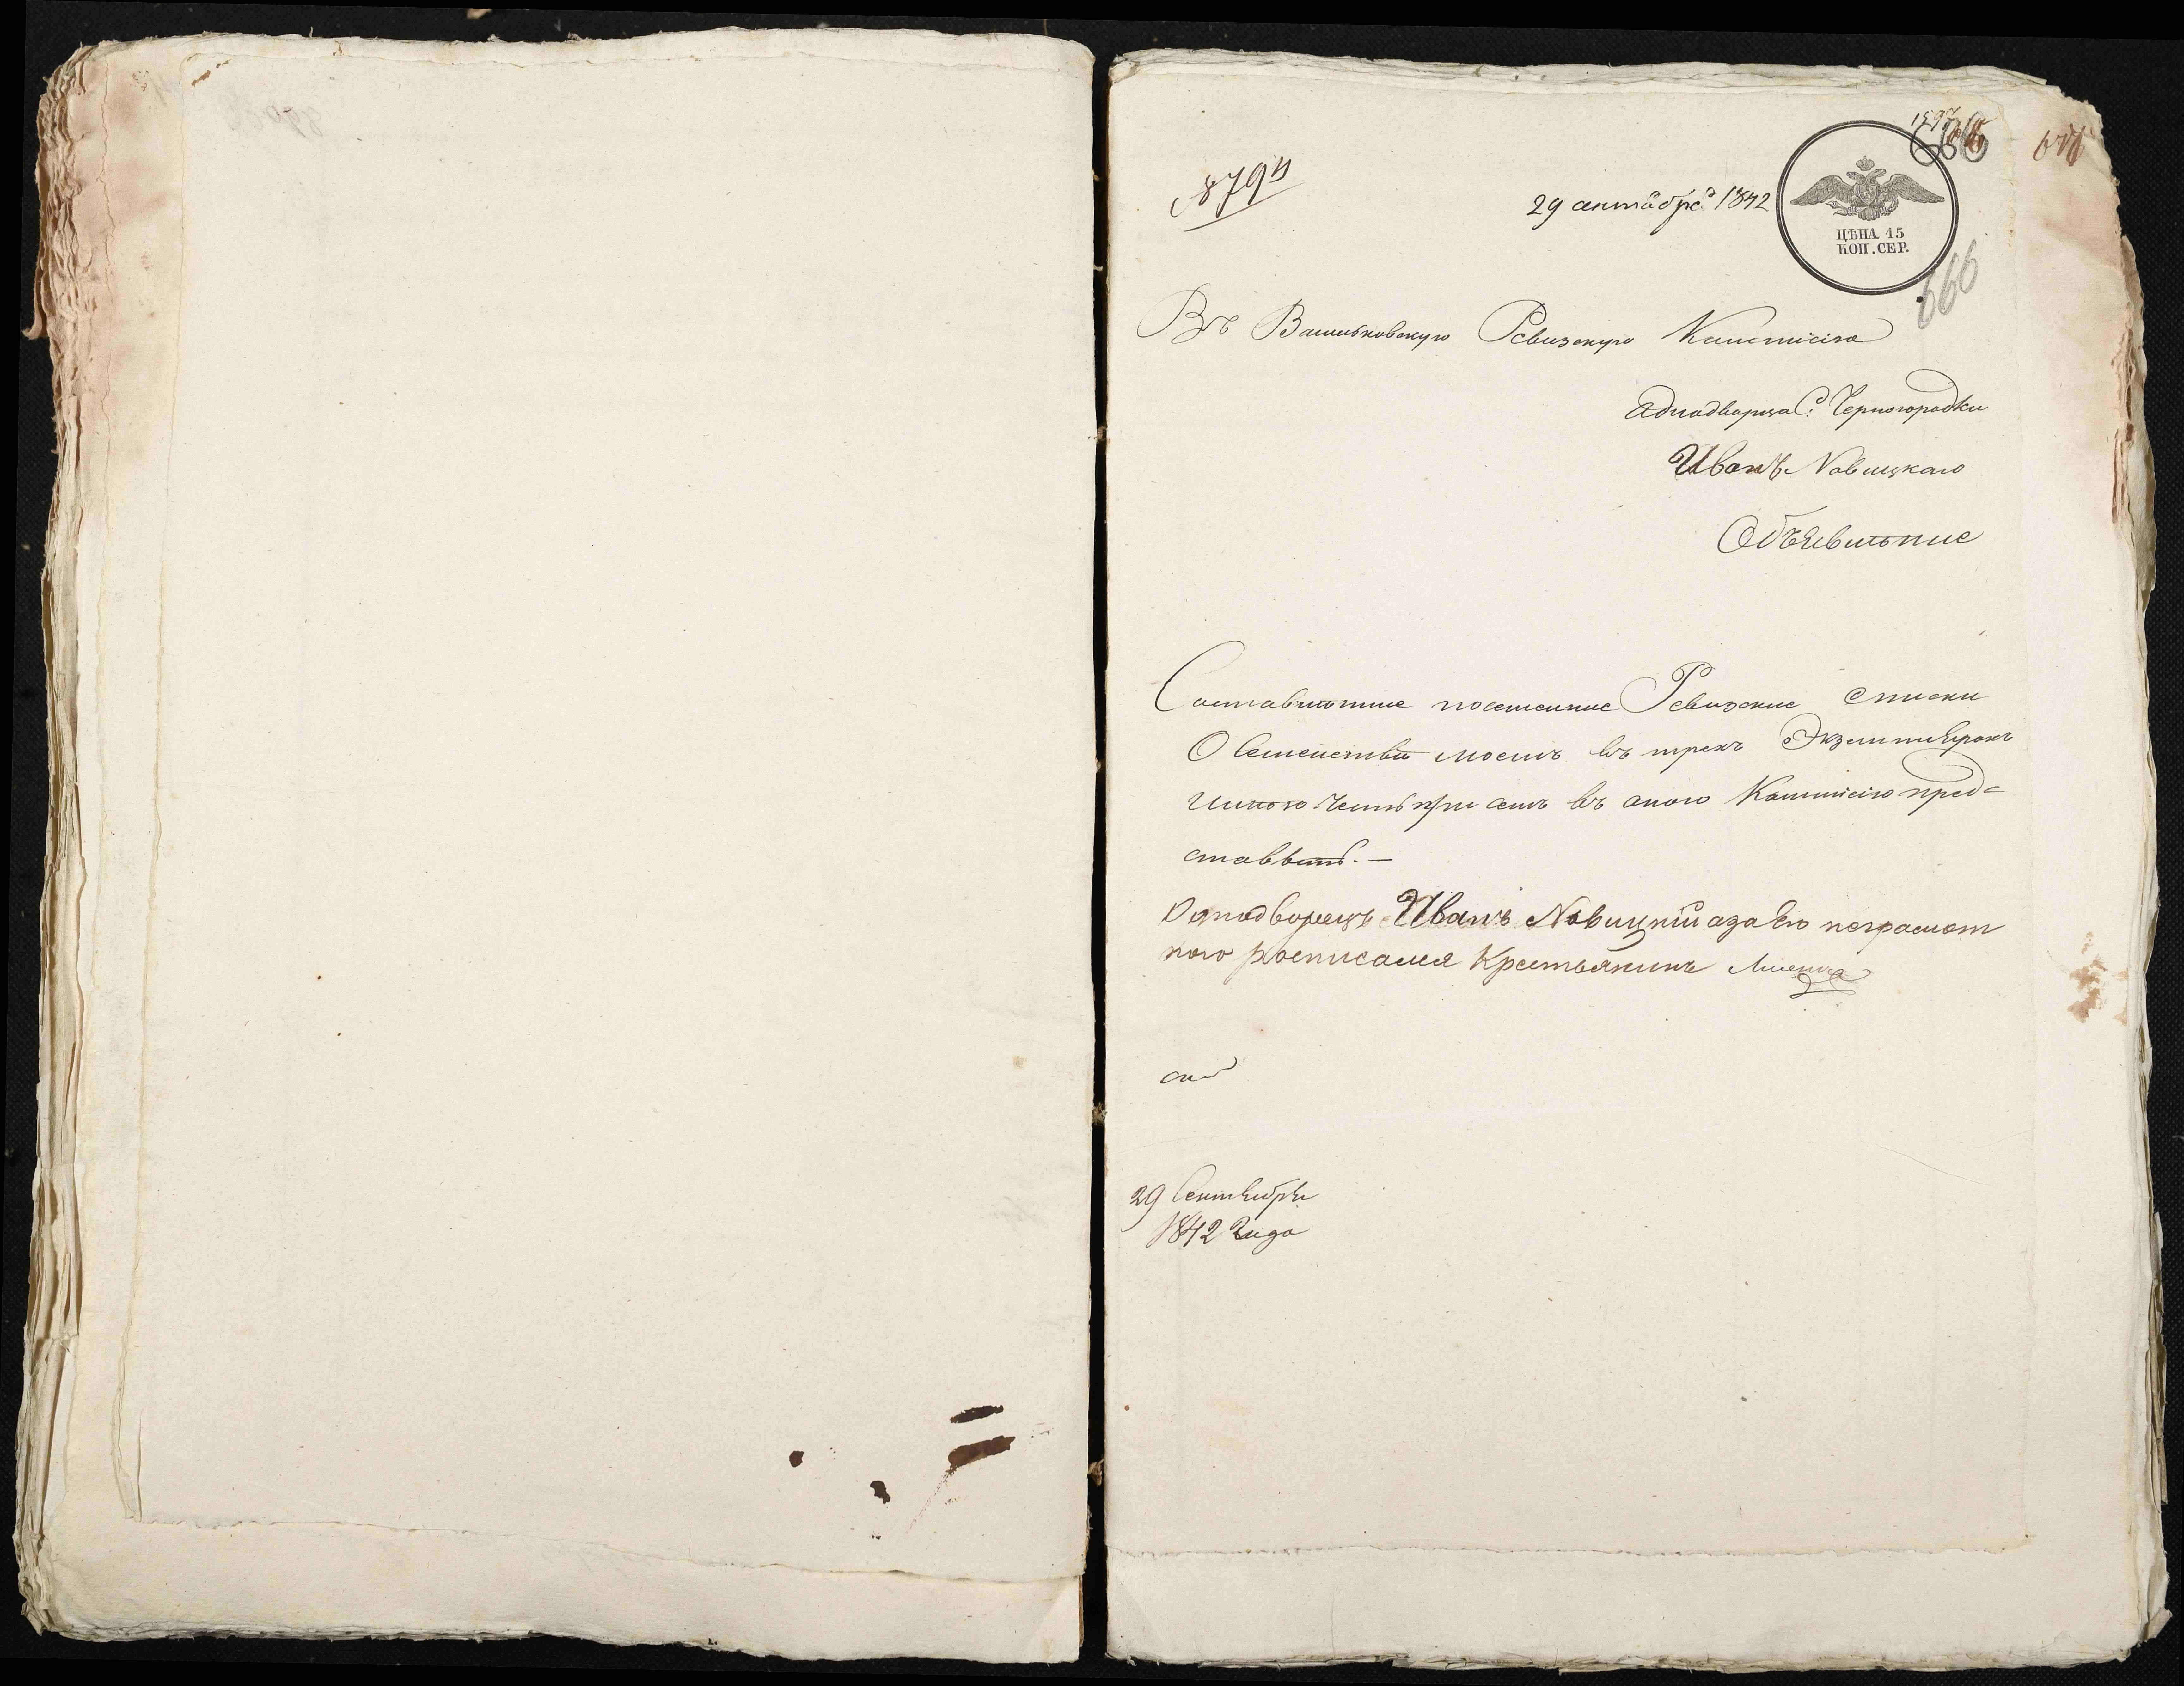 1897
666
8794
29 сентабра 1842
ЦѢНА 15
КОП. СЕР.
666
Въ Васильковскую Ревизскую Коммисiю
Аднадворца С. Черногородки
Иванъ Новицкаго
Объявление
Составившие посемение Ревизские списки
О Семействи моемъ въ трехъ Экземплярахъ
имею честь при семъ въ оною Коммисiю пред=
ставыть. —
Однодворецъ Иванъ Новицкiй аза Его неграмот
ного росписался Крестьянинъ
29 Сентября
1842 Года